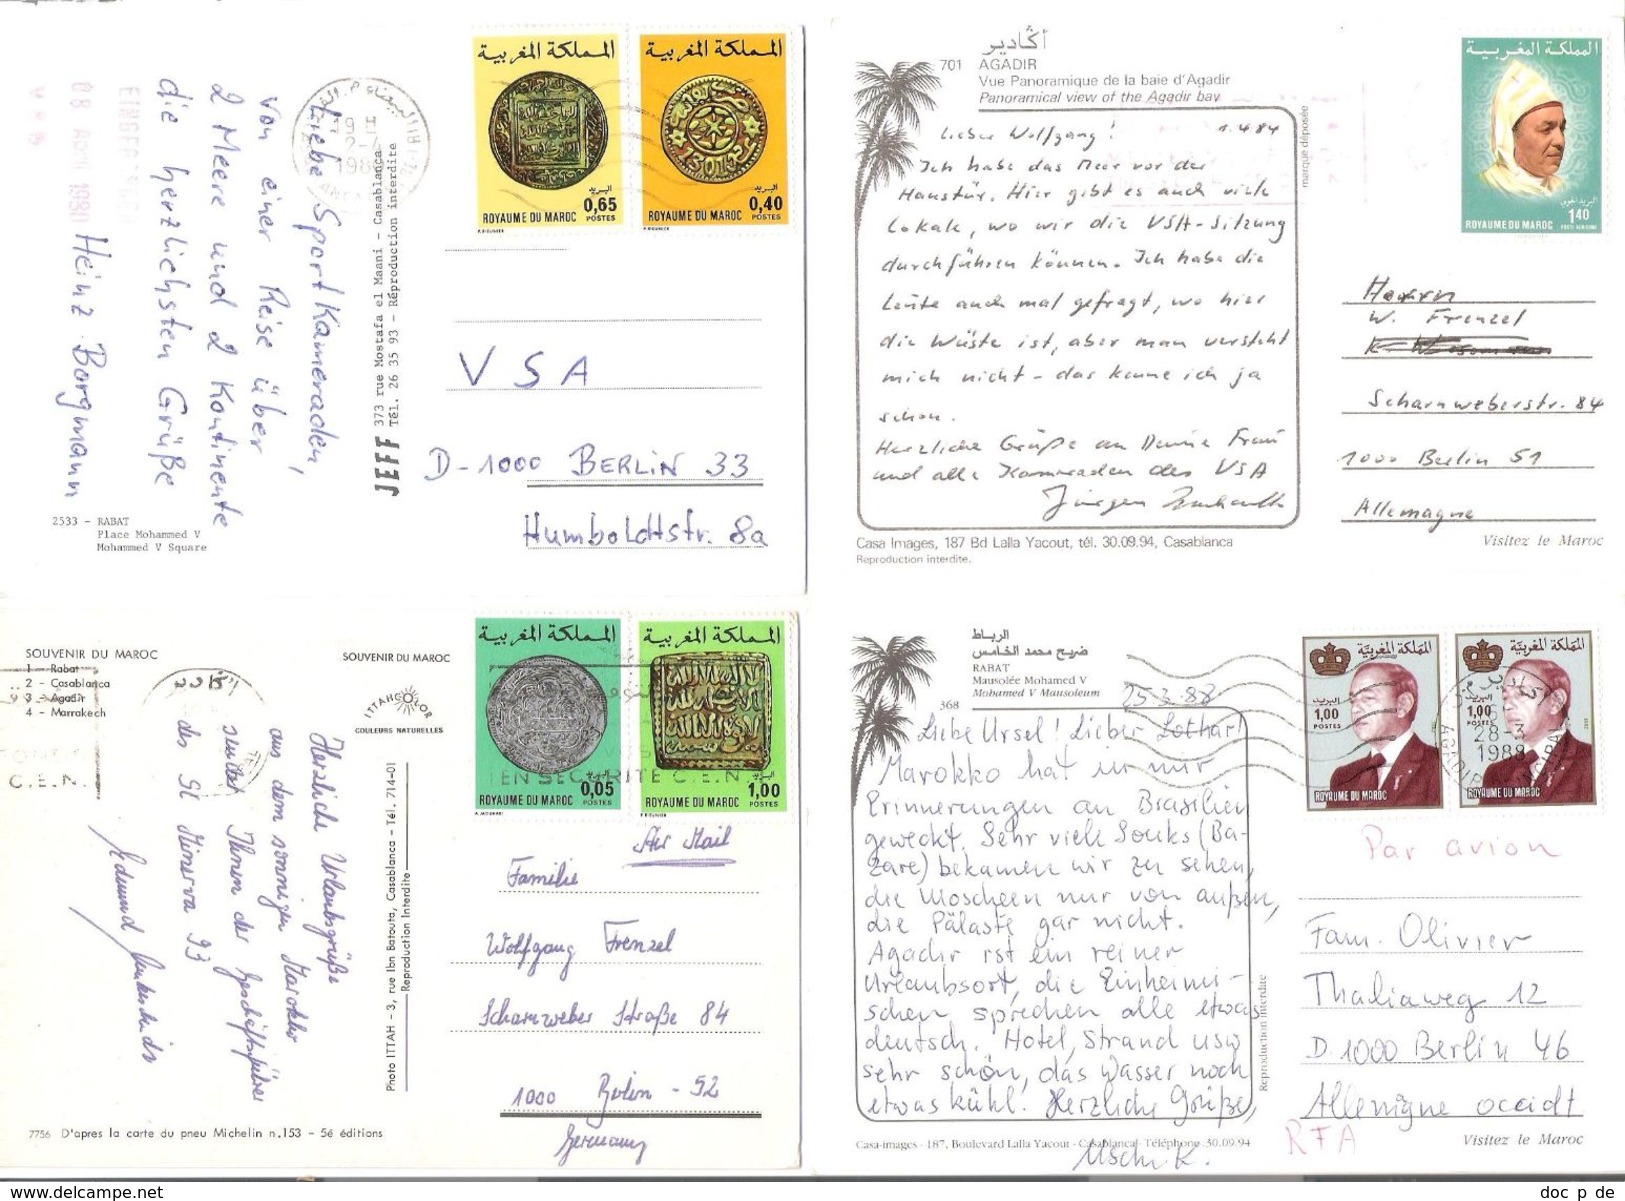 المملكة المغربية
0,65
البريد
ROYAUME DU MAROC
POSTES
المملكة المغربية
0,40
البريد
ROYAUME DU MAROC
POSTES
Liebe Sportkameraden,
von einer Reise über
2 Meere und 2 Kontinente
die herzlichsten Grüße
Heinz Borgmann
08 April 1980
JEFF 373 rue Mostafa el Maani - Casablanca
Tél. 26 35 93 - Réproduction interdite
VSA
D-1000 BERLIN 33
Humboldtstr. 8a
2533 - RABAT
Place Mohammed V
Mohammed V Square
أڭادير
701 AGADIR
Vue Panoramique de la baie d'Agadir
Panoramical view of the Agadir bay
marque déposée
Lieber Wolfgang! 1.4.84
Ich habe das Meer vor der
Haustür. Hier gibt es auch viele
Lokale, wo wir die VSA-Sitzung
durchführen können. Ich habe die
Leute auch mal gefragt, wo hier
die Wüste ist, aber man versteht
mich nicht - das kenne ich ja
schon.
Herzliche Grüße an Deine Frau
und alle Kameraden des VSA
Jürgen
المملكة المغربية
البريد الجوي
1,40
ROYAUME DU MAROC
POSTE AERIENNE
Herrn
W. Frenzel
Scharnweberstr. 84
1000 Berlin 51
Allemagne
Casa Images, 187 Bd Lalla Yacout, tél. 30.09.94, Casablanca
Reproduction interdite.
Visitez le Maroc
SOUVENIR DU MAROC
1 - Rabat
2 - Casablanca
3 - Agadir
4 - Marrakech
SOUVENIR DU MAROC
ITTAH COLOR
COULEURS NATURELLES
أكادير
C.E.N.
المملكة المغربية
0,05
البريد
ROYAUME DU MAROC
POSTES
المملكة المغربية
1,00
البريد
ROYAUME DU MAROC
POSTES
EN SECURITE C.E.N.
Herzliche Urlaubsgrüße
aus dem sonnigen Marokko
sendet Ihnen der Geschäftsführer
des SC Minerva 93
Photo ITTAH - 3, rue Ibn Batouta, Casablanca - Tél. 714-01
Reproduction Interdite
Air Mail
Familie
Wolfgang Frenzel
Scharnweber Straße 84
1000 Berlin - 52
Germany
7756 D'apres la carte du pneu Michelin n.153 - 5é éditions
الرباط
ضريح محمد الخامس
RABAT
Mausolée Mohamed V
Mohamed V Mausoleum
368
25.3.88
Liebe Ursel! Lieber Lothar!
Marokko hat in mir
Erinnerungen an Brasilien
geweckt. Sehr viele Souks (Ba-
zare) bekamen wir zu sehen,
die Moscheen nur von außen,
die Paläste gar nicht.
Agadir ist ein reiner
Urlaubsort, die Einheimi-
schen sprechen alle etwas
deutsch. Hotel, Strand usw
sehr schön, das Wasser noch
etwas kühl. Herzliche Grüße,
Uschi K.
المملكة المغربية
البريد
1,00
POSTES
ROYAUME DU MAROC
المملكة المغربية
البريد
1,00
POSTES
ROYAUME DU MAROC
28-3
1988
AGADIR
Par avion
Fam. Olivier
Thaliaweg 12
D. 1000 Berlin 46
Allemigne occidt
RFA
Reproduction interdite
Casa-images - 187, Boulevard Lalla Yacout - Casablanca - Téléphone 30.09.94
Visitez le Maroc
doc_p_de